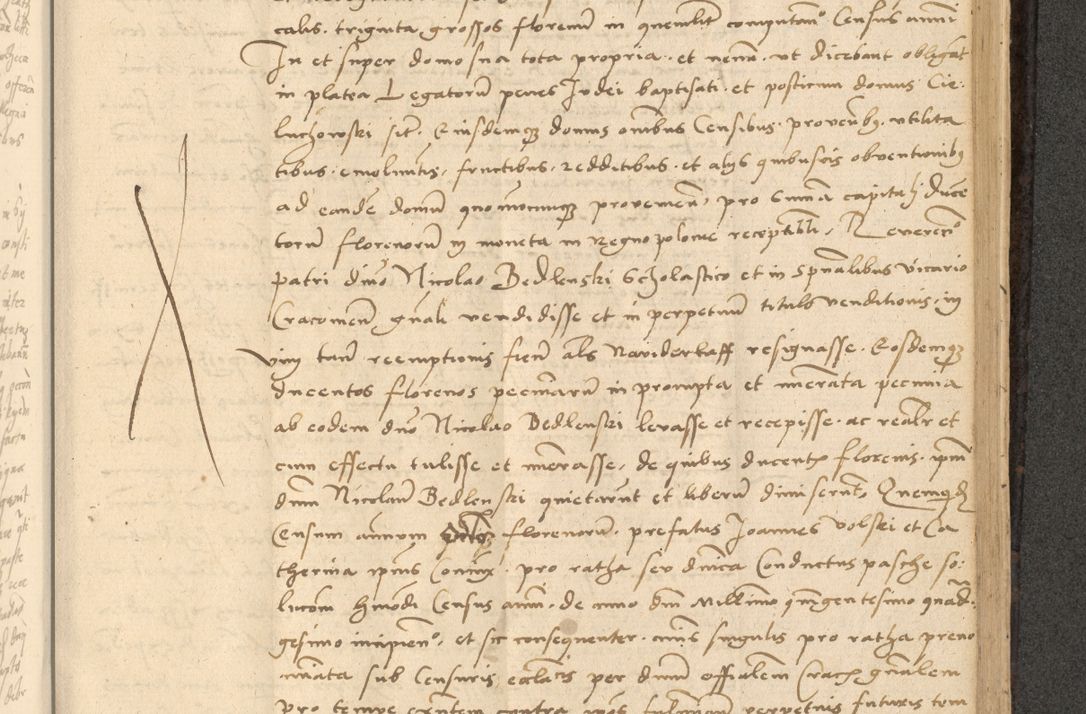 calis, triginta grossos florenum in quemlibet computan° Census annui
In et super domo sua tota propria, et nemini ut dicebant obligat
in platea Legatorum penes Judei baptisati, et posticum domus Cie-
luchowski sit. Eiusdemque domus omnibus Censibus, proventibus, utilita
tibus, emolimentis, fructibus, redditibus, et alys quibuscis obventionibus
ad eandem domum quomocumque provenien, pro Summa capitali Ducen
torum florenorum in moneta in Regno polonie receptibili, Reveren°
patri dno Nicolao Bedlenski Scholastico et in spualibus vicario
Cracovien gnali vendidisse et in perpetuum titulo venditionis, in
vim tamen reemptionis fien als Naviderkaff resignasse. Eosdemque
ducentos florenos pecuniarum in prompta et numerata pecunia
ab eodem dno Nicolao Bedlenski levasse et recepisse, ac realr et
cum effectu tulisse et numerasse, de quibus ducentis florenis, ipsum
dnum Nicolaum Bedlenski quietarunt et liberum dimiserunt, Quemquidem
Censum annuum florenorum, prefatus Joannes Volski et Ca
therina ipius Coniunx, pro ratha seu dnica Conductus pasche so-
lucom hmodi Census annui, de anno dni Millimo quingentesimo quad-
gesimo incipien°, et sic consequenter annis singulis pro ratha preno
minata sub Censuris eccliasticis per dnum offialem Crac gnalem
pro tempore existentem contra ipsos fulminan perpetuis futuris tem